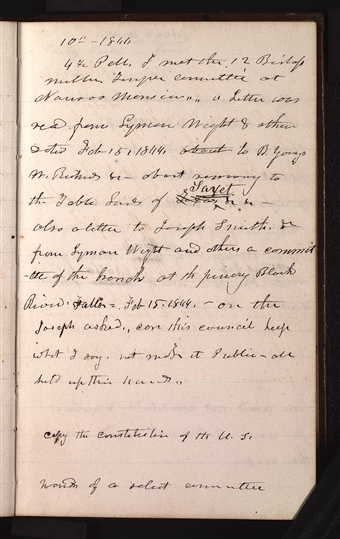 10th - 1844
4 1/2 P.M., I met the 12 Bishop
Miller Temple committee at
Nauvoo Mansion,, a letter was
read from Lyman Wight & others
dated Feb 15, 1844. about to B Young
W. Richards &c - about removing to
the Table Lands of Saxet &c &c -
also a letter to Joseph Smith. &
from Lyman Wight and others a commit
-tee of the branch at the pinery Black
River Falls - Feb 15. 1844. - on the
Joseph asked,, can this council keep
what I say. not make it Public - all
held up their hands,,
copy the constitution of the U. S.
hands of a select committee